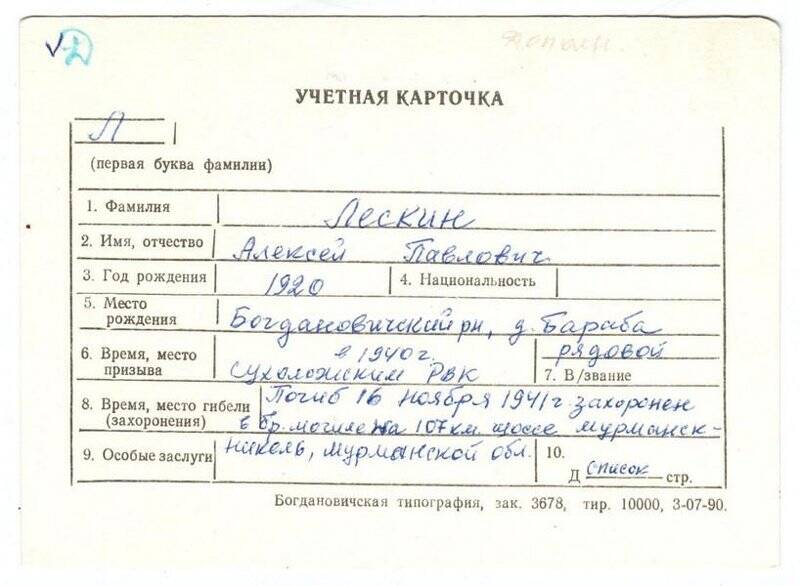 Дополн.
УЧЕТНАЯ КАРТОЧКА
Л
(первая буква фамилии)
1. Фамилия Лескин
2. Имя, отчество Алексей Павлович
3. Год рождения 1920 4. Национальность
5. Место рождения Богдановичский рн, д. Бараба
6. Время, место призыва в 1940 г. Сухоложским РВК
рядовой
7. В/звание
8. Время, место гибели (захоронения) Погиб 16 ноября 1941 г. захоронен
в бр. могиле на 107 км. шоссе Мурманск-
9. Особые заслуги Никель, Мурманской обл.
10.
Д список стр.
Богдановичская типография, зак. 3678, тир. 10000, 3-07-90.